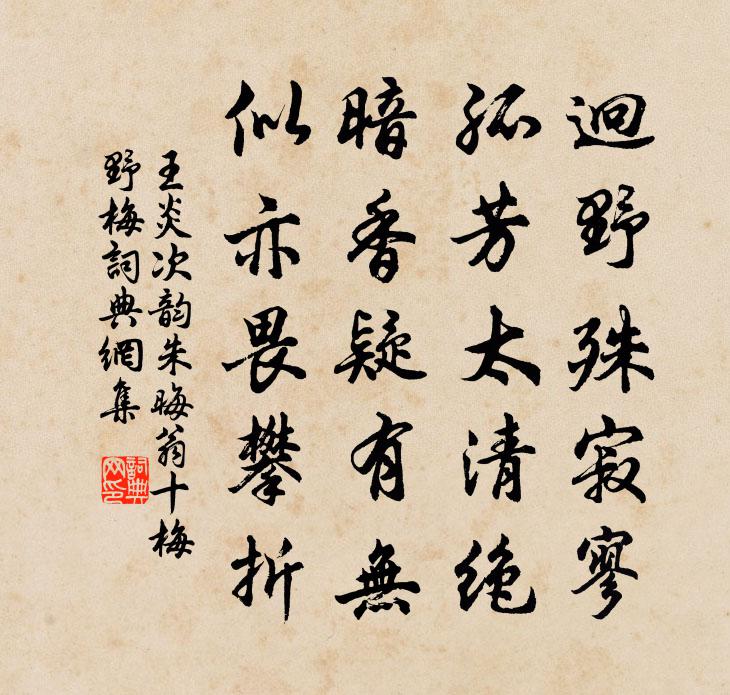 迥野殊寂寥
孤芳太清絶
暗香疑有無
似亦畏攀折
王炎次韵朱晦翁十梅
野梅詞典網集
詞典网印